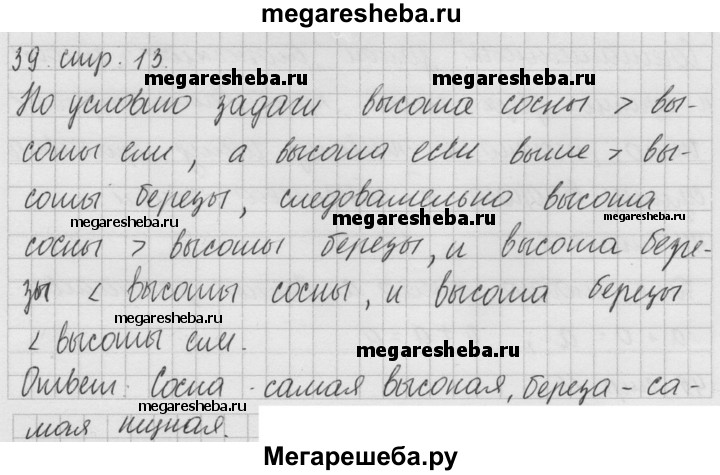 megaresheba.ru
39. стр. 13.
megaresheba.ru megaresheba.ru
По условию задачи высота сосны > вы-
соты ели, а высота если выше > вы-
соты березы, следовательно высота
megaresheba.ru megaresheba.ru megaresheba.ru
сосны > высоты березы, и высота бере-
зы < высоты сосны, и высота березы
megaresheba.ru
< высоты ели.
megaresheba.ru
Ответ: Сосна - самая высокая, береза - са-
megaresheba.ru
мая низкая.
Мегарешеба.ру